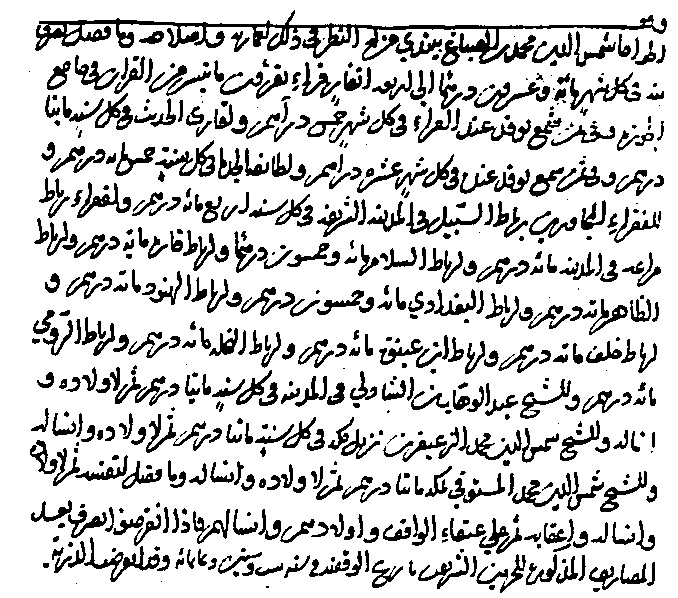 الخواجا شمس الدين محمد بن الصباغ بيندي في النظر في ذلك لعمارته واصلاحه وما فضل
منه في كل شهر مائة وعشرون درهما الى اربعة انفار قراء يقرؤن ما تيسر من القرآن في جامع
وفي ثمن شمع يوقد عند القراء في كل شهر خمس دراهم ولقارئ الحديث في كل سنة مايتا
درهم وفي ثمن شمع يوقد عنده في كل شهر عشره دراهم في كل سنة درهم و
للفقراء المجاورين برباط السبيل في المدينه الشريفه في كل سنه اربع مائه درهم ولفقراء رباط
مراغه في المدينه مائه درهم ولرباط السلامي مائه وخمسون درهما ولرباط مايه درهم ولرباط
الظاهر مائه درهم ولرباط البغدادي مائه وخمسون درهم ولرباط الهنود مائه درهم و
لرباط خلف مائه درهم ولرباط ابن مائه درهم ولرباط النخله مائه درهم ولرباط
مائه درهم وللشيخ عبد الوهاب بن في المدينه في كل سنة مايتا درهم ثم لاولاده و
انساله وللشيخ شمس الدين محمد الزعيفرين نزيل مكه في كل سنة مائتا درهم ثم لاولاده وانساله
وللشيخ شمس الدين محمد المستوفي بمكه مائتا درهم ثم لاولاده وانساله وما فضل لنفسه ثم لاولاده
وانساله واعقابه ثم على عتقاء الواقف واولادهم وانسالهم فاذا انقرضوا يعمل
المصارف المذكورة للحرمين الشريفين تاريخ الوقفيه في سنه ست وستين وثمانمائه